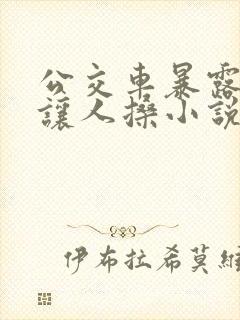 公交車暴露
讓人操小說
伊布拉希莫維